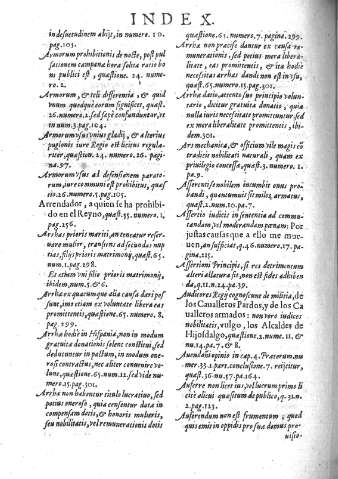 INDEX.
in desuetudinem abijs, in numero. 10.
pag. 103.
Armorum prohibitionis de nocte, post pul
sationem campanæ hera solita ratio bo
ni publici est, quæstione. 24. nume-
ro. 2.
Armorum, & teli differentia, & quid
unum quodque eorum significet, quæst.
26. numero. 2. sed sæpè confunduntur, et
in num. 3. pag. 104.
Armorum usus unius gladij, & alterius
pugionis iure Regio est licitus regula-
riter, quæstion. 24. numero. 26. pagi-
na. 97.
Armorum usus ad defensionem parato-
rum, iure communi est prohibitus, quæs-
tio. 26. numero. 5. pag. 105.
Arrendador, a quien se ha prohibi-
do en el Reyno, quæst. 55. numero. 1,
pag. 256.
Arrhas prioris mariti, an teneatur reser-
uare mulier, transiens ad secundas nup
tias, filijs prioris matrimonij, quæst. 65.
num. 1. pag. 298.
Et etiam uni filio prioris matrimonij,
ibidem, num. 5. & 6.
Arrha ex quacumque alia causa dari pos
sunt, ims etiam ex voluntate liberæ cau
promittentis, quæstione. 65. numero. 8.
pag. 299.
Arrha hodie in Hispania, non in modum
gratuitæ donationis solent constitui, sed
deducuntur in pactum, in modum one-
rosi contractus, nec aliter conuenire vo-
lunt, quæstione. 65. num. 12. sed vide nu-
mero. 15. pag. 301.
Arrha non habentur titulo lucratiuo, sed
potius oneroso, quia censentur data in
compensam dotis, & honoris muliebris,
seu nobilitatis, vel remunerationis dotis
quæstione. 65. numero. 7. pagina. 299.
Arrha non præcisè dantur ex causa re-
munerationis, sed potius mera liberali-
tate, eas promittentis, & ita hodie
necesitas arrhas dandi non est in usu,
quæst. 65. numero. 15. pag. 301.
Arrha datio, attento suo principio volun-
tario, dicitur gratuita donatio, quia
nulla iuris necesitate promittuntur, sed
ex mera liberalitate promittentis, ibi-
dem. 301.
Ars mechanica, & officium vile magis cō
tradicit nobilitati naturali, quam ex
priuilegio concessa, quæst. 3. numero. 2.
pa. 9.
Asserentis nobilem incumbit onus pro-
bandi, quantumuis sit miles, armatus,
quæst. 2. num. 10. pa. 7.
Assertio iudicis in sententia ad commu-
tandam, vel moderandam pœnam: Por
justas causas que a ello me mue-
uen, an sufficias, q. 46. numero. 17. pa-
gina. 215.
Assertioni Principis, si res detrimentum
alteri allatura sit, non est fides adhiben
da, q. 11. n. 24. pa. 39.
Audiores Regij cognoscunt de militia, de
los Caualleros Pardos, y de los Ca
ualleros armados: non verò iudices
nobilitatis, vulgo, los Alcaldes de
Hijosdalgo, quæstione. 2. nume. 11, &
nu. 14. pa. 7, & 8.
Auendañi opinio in cap. 4. Prætorum, nu
mer. 33. 2. pars. conclusione. 7. reijcitur,
quæst. 36. nu. 57. pa. 164.
Auferre non licet ius, vel lucrum primi li
citè alicui quæsitum de publico, q. 31. n.
2. pag. 123.
Auferendum non est frumentum, quod
quis emit in oppidis pro sua domus pro-
uisio-